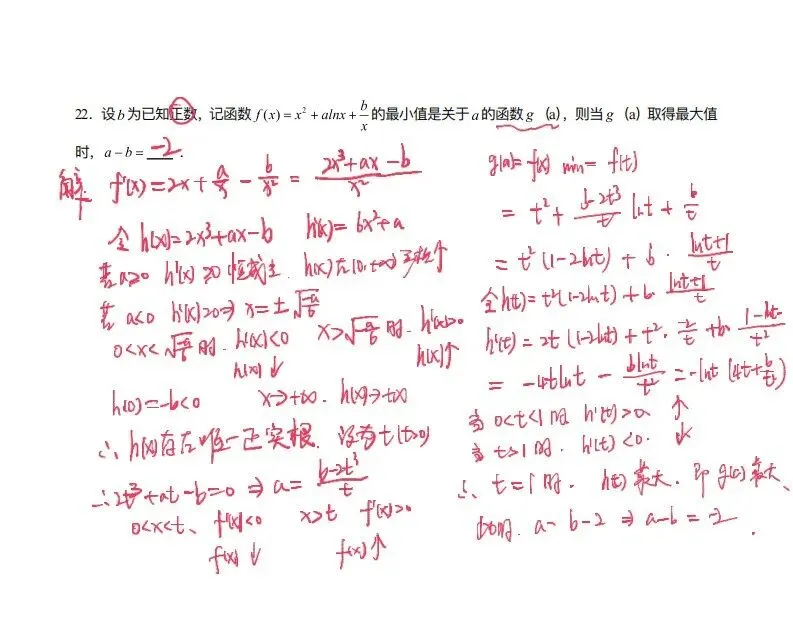 22. 设b为已知正数，记函数 f(x)=x²+alnx+b/x 的最小值是关于a的函数g（a），则当g（a）取得最大值
时，a-b= -2 .
解 f'(x)=2x+a/x-b/x²=(2x³+ax-b)/x²
令 h(x)=2x³+ax-b h'(x)=6x²+a
若a≥0 h'(x)≥0恒成立. h(x)在(0,+∞)
若 a<0 h'(x)=0⇒x=±√(-a/6)
0<x<√(-a/6)时. h'(x)<0 x>√(-a/6)时. h'(x)>0
h(x)↓ h(x)↑
h(0)=-b<0 x→+∞. h(x)→+∞
∴h(x)存在唯一正实根. 设为t(t>0)
∴2t³+at-b=0⇒a=(b-2t³)/t
0<x<t、f'(x)<0 x>t f'(x)>0
f(x)↓ f(x)↑
g(a)=f(x) min=f(t)
=t²+(b-2t³)/t lnt+b/t
=t²(1-2lnt)+b·(lnt+1)/t
令h(t)=t²(1-2lnt)+b·(lnt+1)/t
h'(t)=2t(1-2lnt)+t²·2/t+b·(1-lnt-)/t²
=-4tlnt-blnt/t²=-lnt(4t+b/t²)
当0<t<1时 h'(t)>0 ↑
当t>1时. h'(t)<0. ↓
∴t=1时. h(t)最大. 即g(a)最大、
此时. a=b-2⇒a-b=-2.